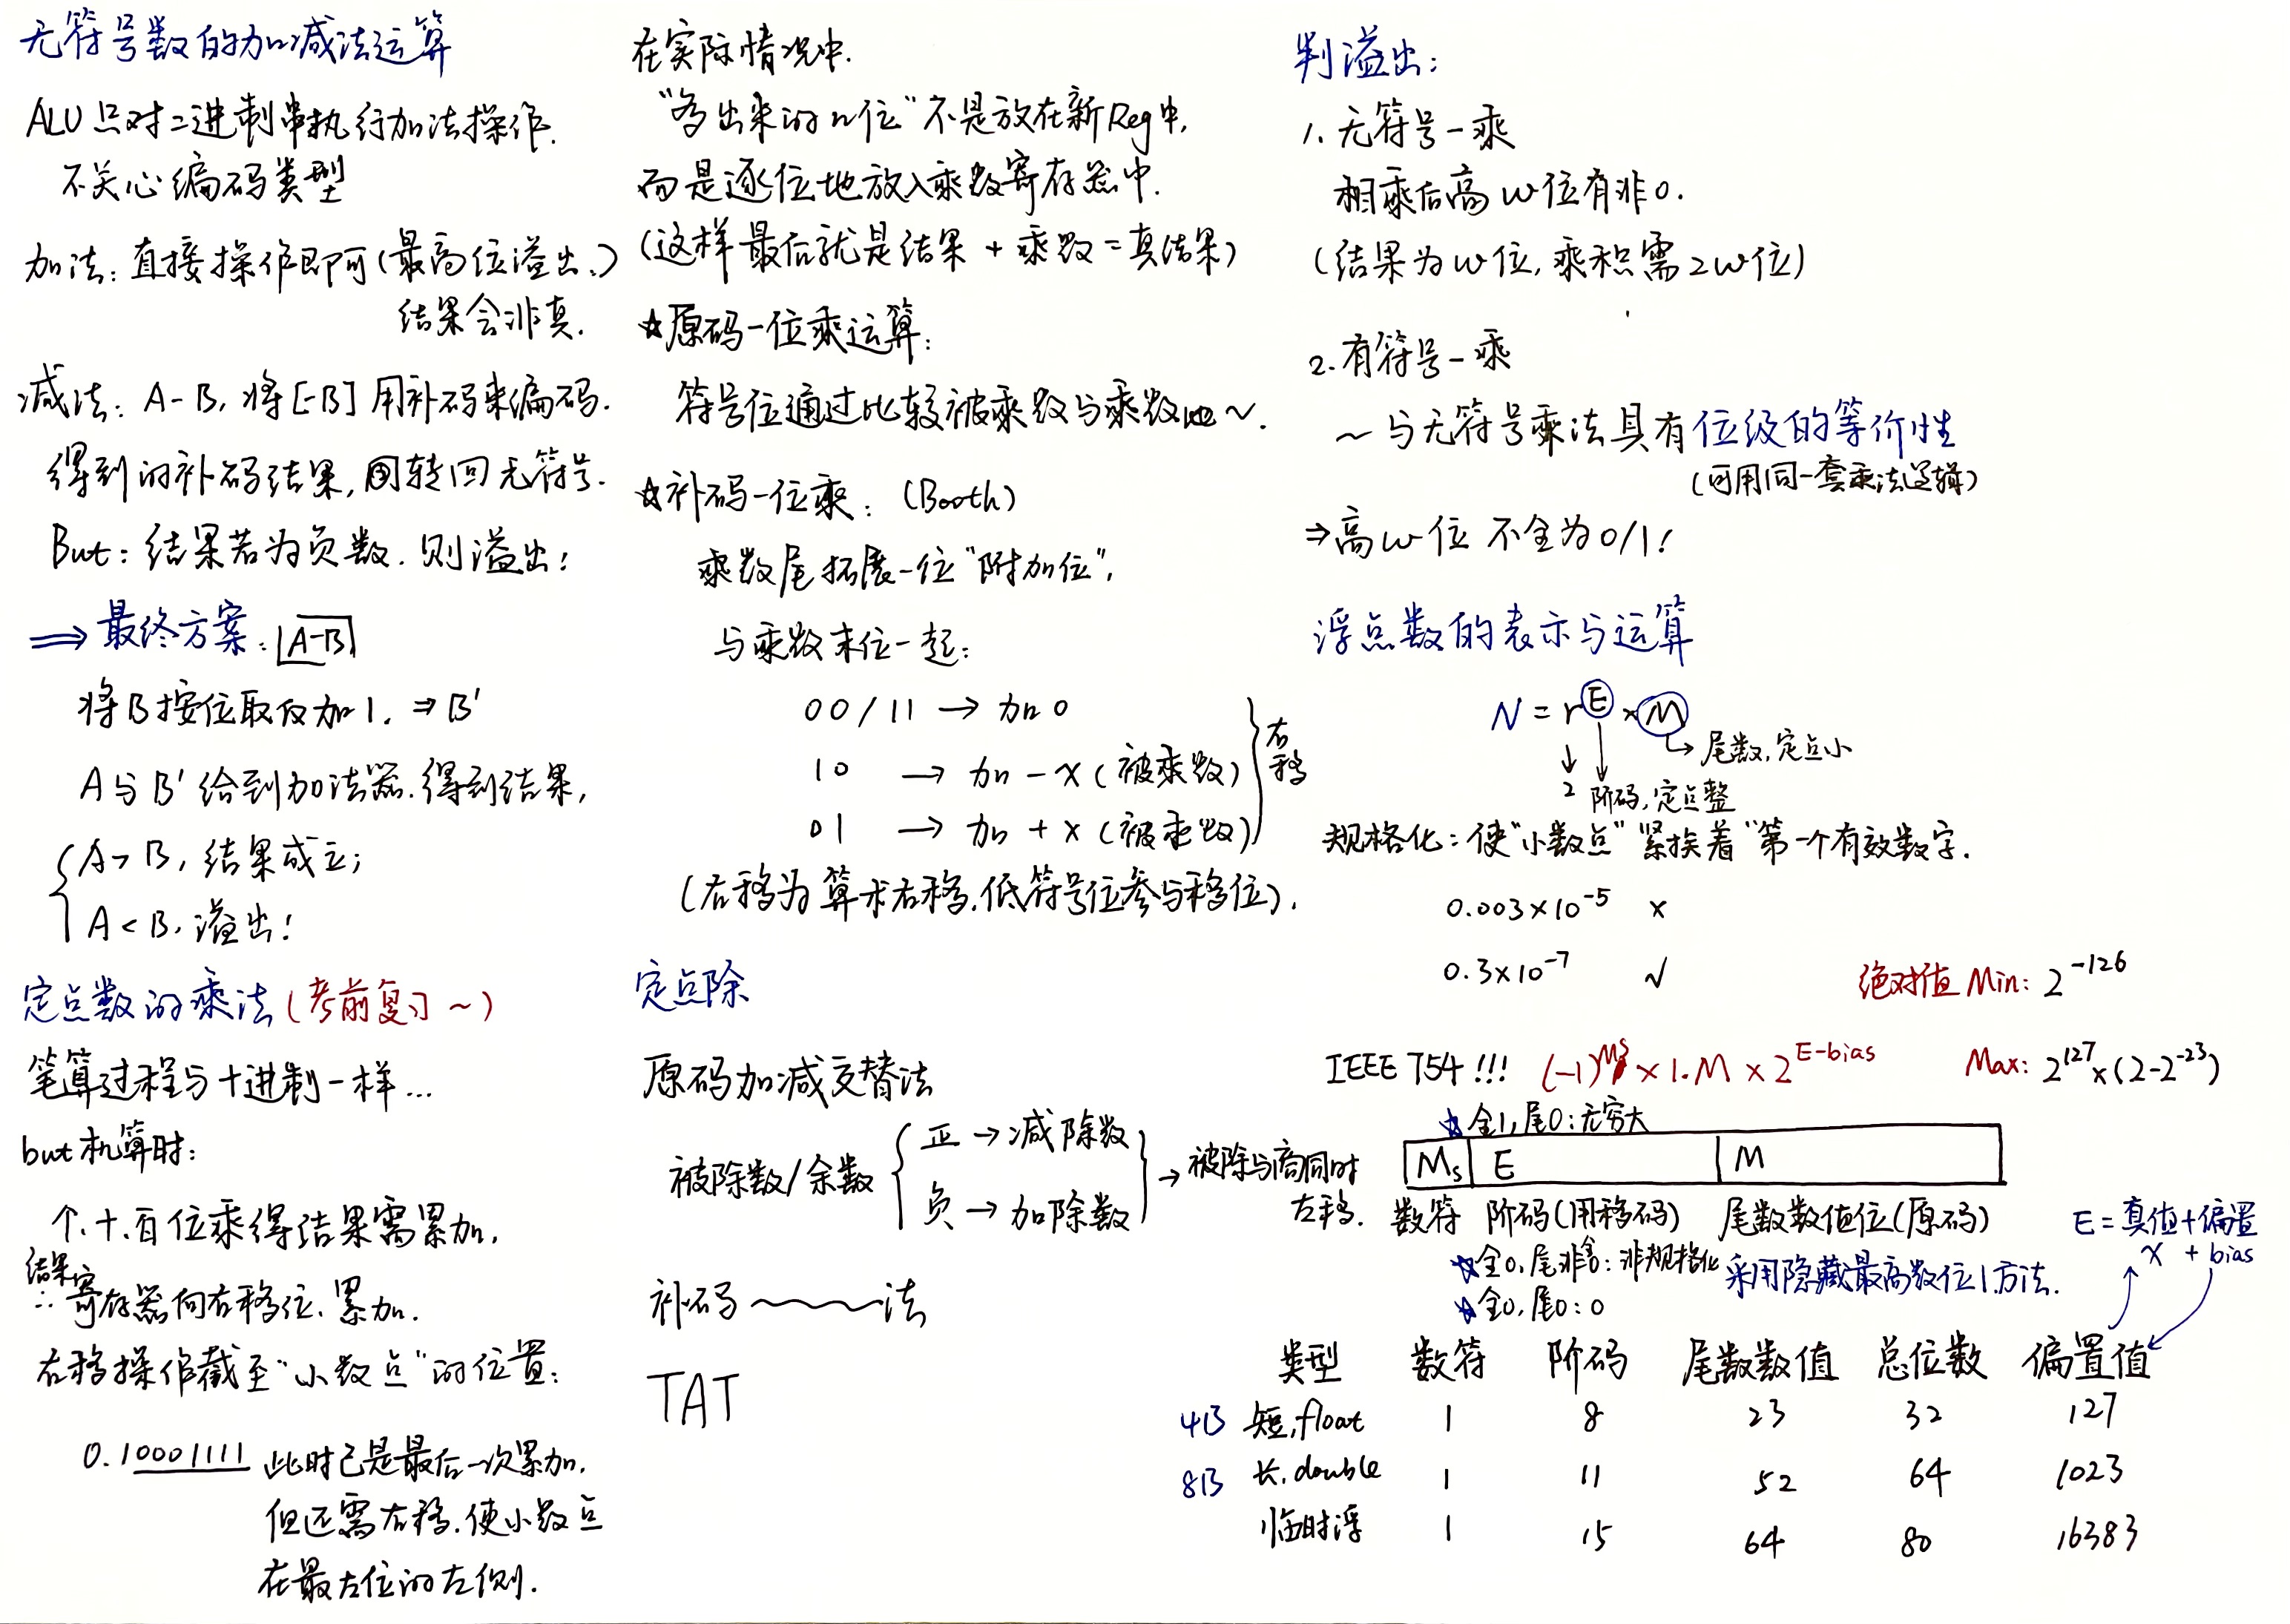 无符号数的加减法运算
ALU只对二进制串执行加法操作.
不关心编码类型
加法: 直接操作即可(最高位溢出,)
结果会非真.
减法: A-B, 将[-B]用补码来编码.
得到的补码结果, 转回无符号.
But: 结果若为负数. 则溢出!
⇒ 最终方案: A-B
将B按位取反加1. ⇒ B'
A与B'给到加法器. 得到结果,
A>B, 结果成立;
A<B, 溢出!
定点数的乘法(考前复习~)
笔算过程与十进制一样...
but机算时:
个.十.百位乘得结果需累加,
结果
∴寄存器向右移位. 累加.
右移操作截至"小数点"的位置:
0.10001111 此时已是最后一次累加,
但还需右移. 使小数点
在最左位的左侧.
在实际情况中.
"多出来的n位"不是放在新Reg中,
而是逐位地放入乘数寄存器中.
(这样最后就是结果+乘数=真结果)
☆原码一位乘运算:
符号位通过比较被乘数与乘数吧~.
☆补码一位乘: (Booth)
乘数尾拓展一位"附加位",
与乘数末位一起:
00/11 → 加0
10 → 加-x(被乘数)
01 → 加+x(被乘数)
右移
(右移为算术右移. 低符号位参与移位).
定点除
原码加减交替法
被除数/余数
正→减除数
负→加除数
→被除与商同时
左移.
补码～～～法
TAT
判溢出:
1. 无符号-乘
相乘后高w位有非0.
(结果为w位, 乘积需2w位)
2. 有符号-乘
~与无符号乘法具有位级的等价性
(可用同一套乘法逻辑)
⇒高w位 不全为0/1!
浮点数的表示与运算
N = r^E × M
→ 尾数, 定点小
2 阶码, 定点整
规格化: 使"小数点"紧挨着"第一个有效数字.
0.003×10^-5 ×
0.3×10^-7 √
绝对值Min: 2^-126
IEEE 754 !!! (-1)^Ms × 1.M × 2^E-bias Max: 2^127×(2-2^-23)
☆全1, 尾0: 无穷大
Ms E M
数符 阶码(用移码) 尾数数值位(原码)
E = 真值+偏置
x + bias
☆全0, 尾非0: 非规格化 采用隐藏最高数位1方法.
☆全0, 尾0: 0
类型 数符 阶码 尾数数值 总位数 偏置值
4B 短, float 1 8 23 32 127
8B 长, double 1 11 52 64 1023
临时浮 1 15 64 80 16383